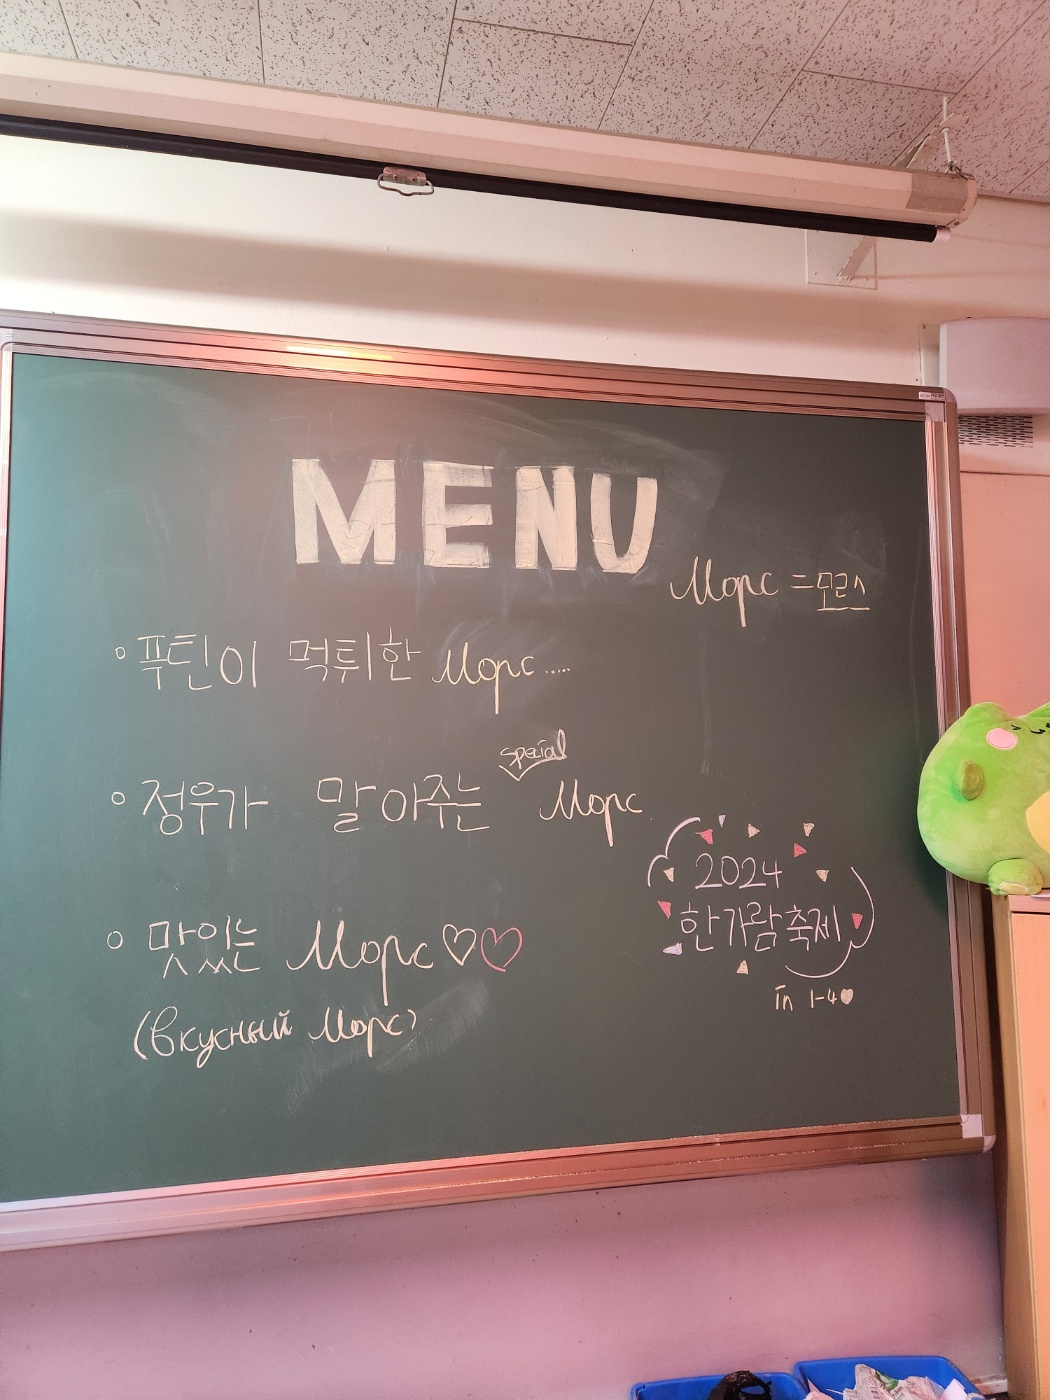 MENU
Морс = 모르스
• 푸틴이 먹튀한 Морс.....
special
• 정우가 말아주는 Морс
• 맛있는 Морс♡♡
(Вкусный Морс)
2024
한가람축제
in 1-4♥